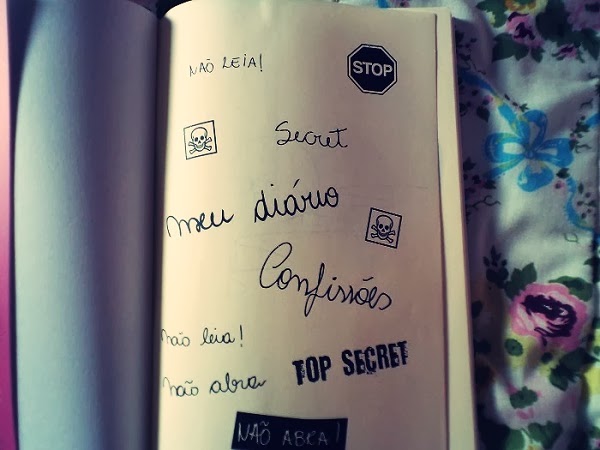 NÃO LEIA!
STOP
Secret
meu diário
Confissões
não leia!
TOP SECRET
não abra
NÃO ABRA!